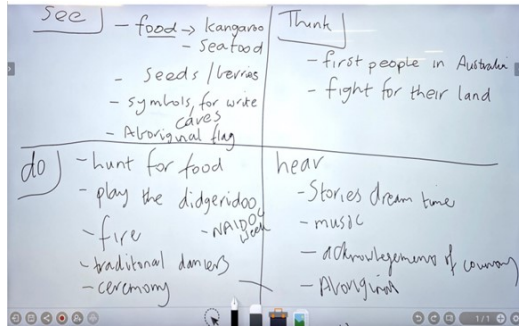 See
- food → kangaroo
- seafood
- seeds / berries
- symbols, for write
caves
- Aboriginal flag
Think
- first people in Australia
- fight for their land
do
- hunt for food
- play the didgeridoo
- fire
- NAIDOC week
- traditional dancers
- ceremony
hear
- Stories dream time
- music
- acknowlegements of country
- Aboriginal
1/1